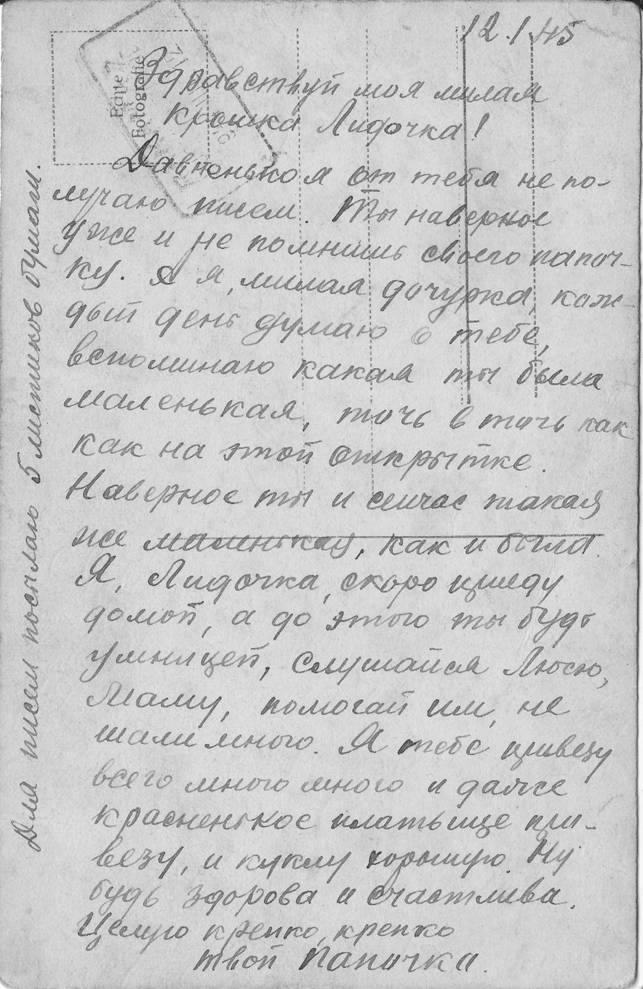 12.1.45
Echte
Fotografie
Здравствуй моя милая
крошка Лидочка!
Давненько я от тебя не по-
лучаю писем. Ты наверное
уже и не помнишь своего папоч-
ку. А я, милая дочурка, каж-
дый день думаю о тебе,
вспоминаю какая ты была
маленькая, точь в точь как
как на этой открытке.
Наверное ты и сейчас такая
же маленькая, как и была.
Я, Лидочка, скоро приеду
домой, а до этого ты будь
умницей, слушайся Люсю,
Маму, помогай им, не
шали много. Я тебе привезу
всего много много и даже
красненькое платьице при-
везу, и куклу хорошую. Ну
будь здорова и счастлива.
Целую крепко, крепко
твой Папочка.
Для писем посылаю 5 листиков бумаги.